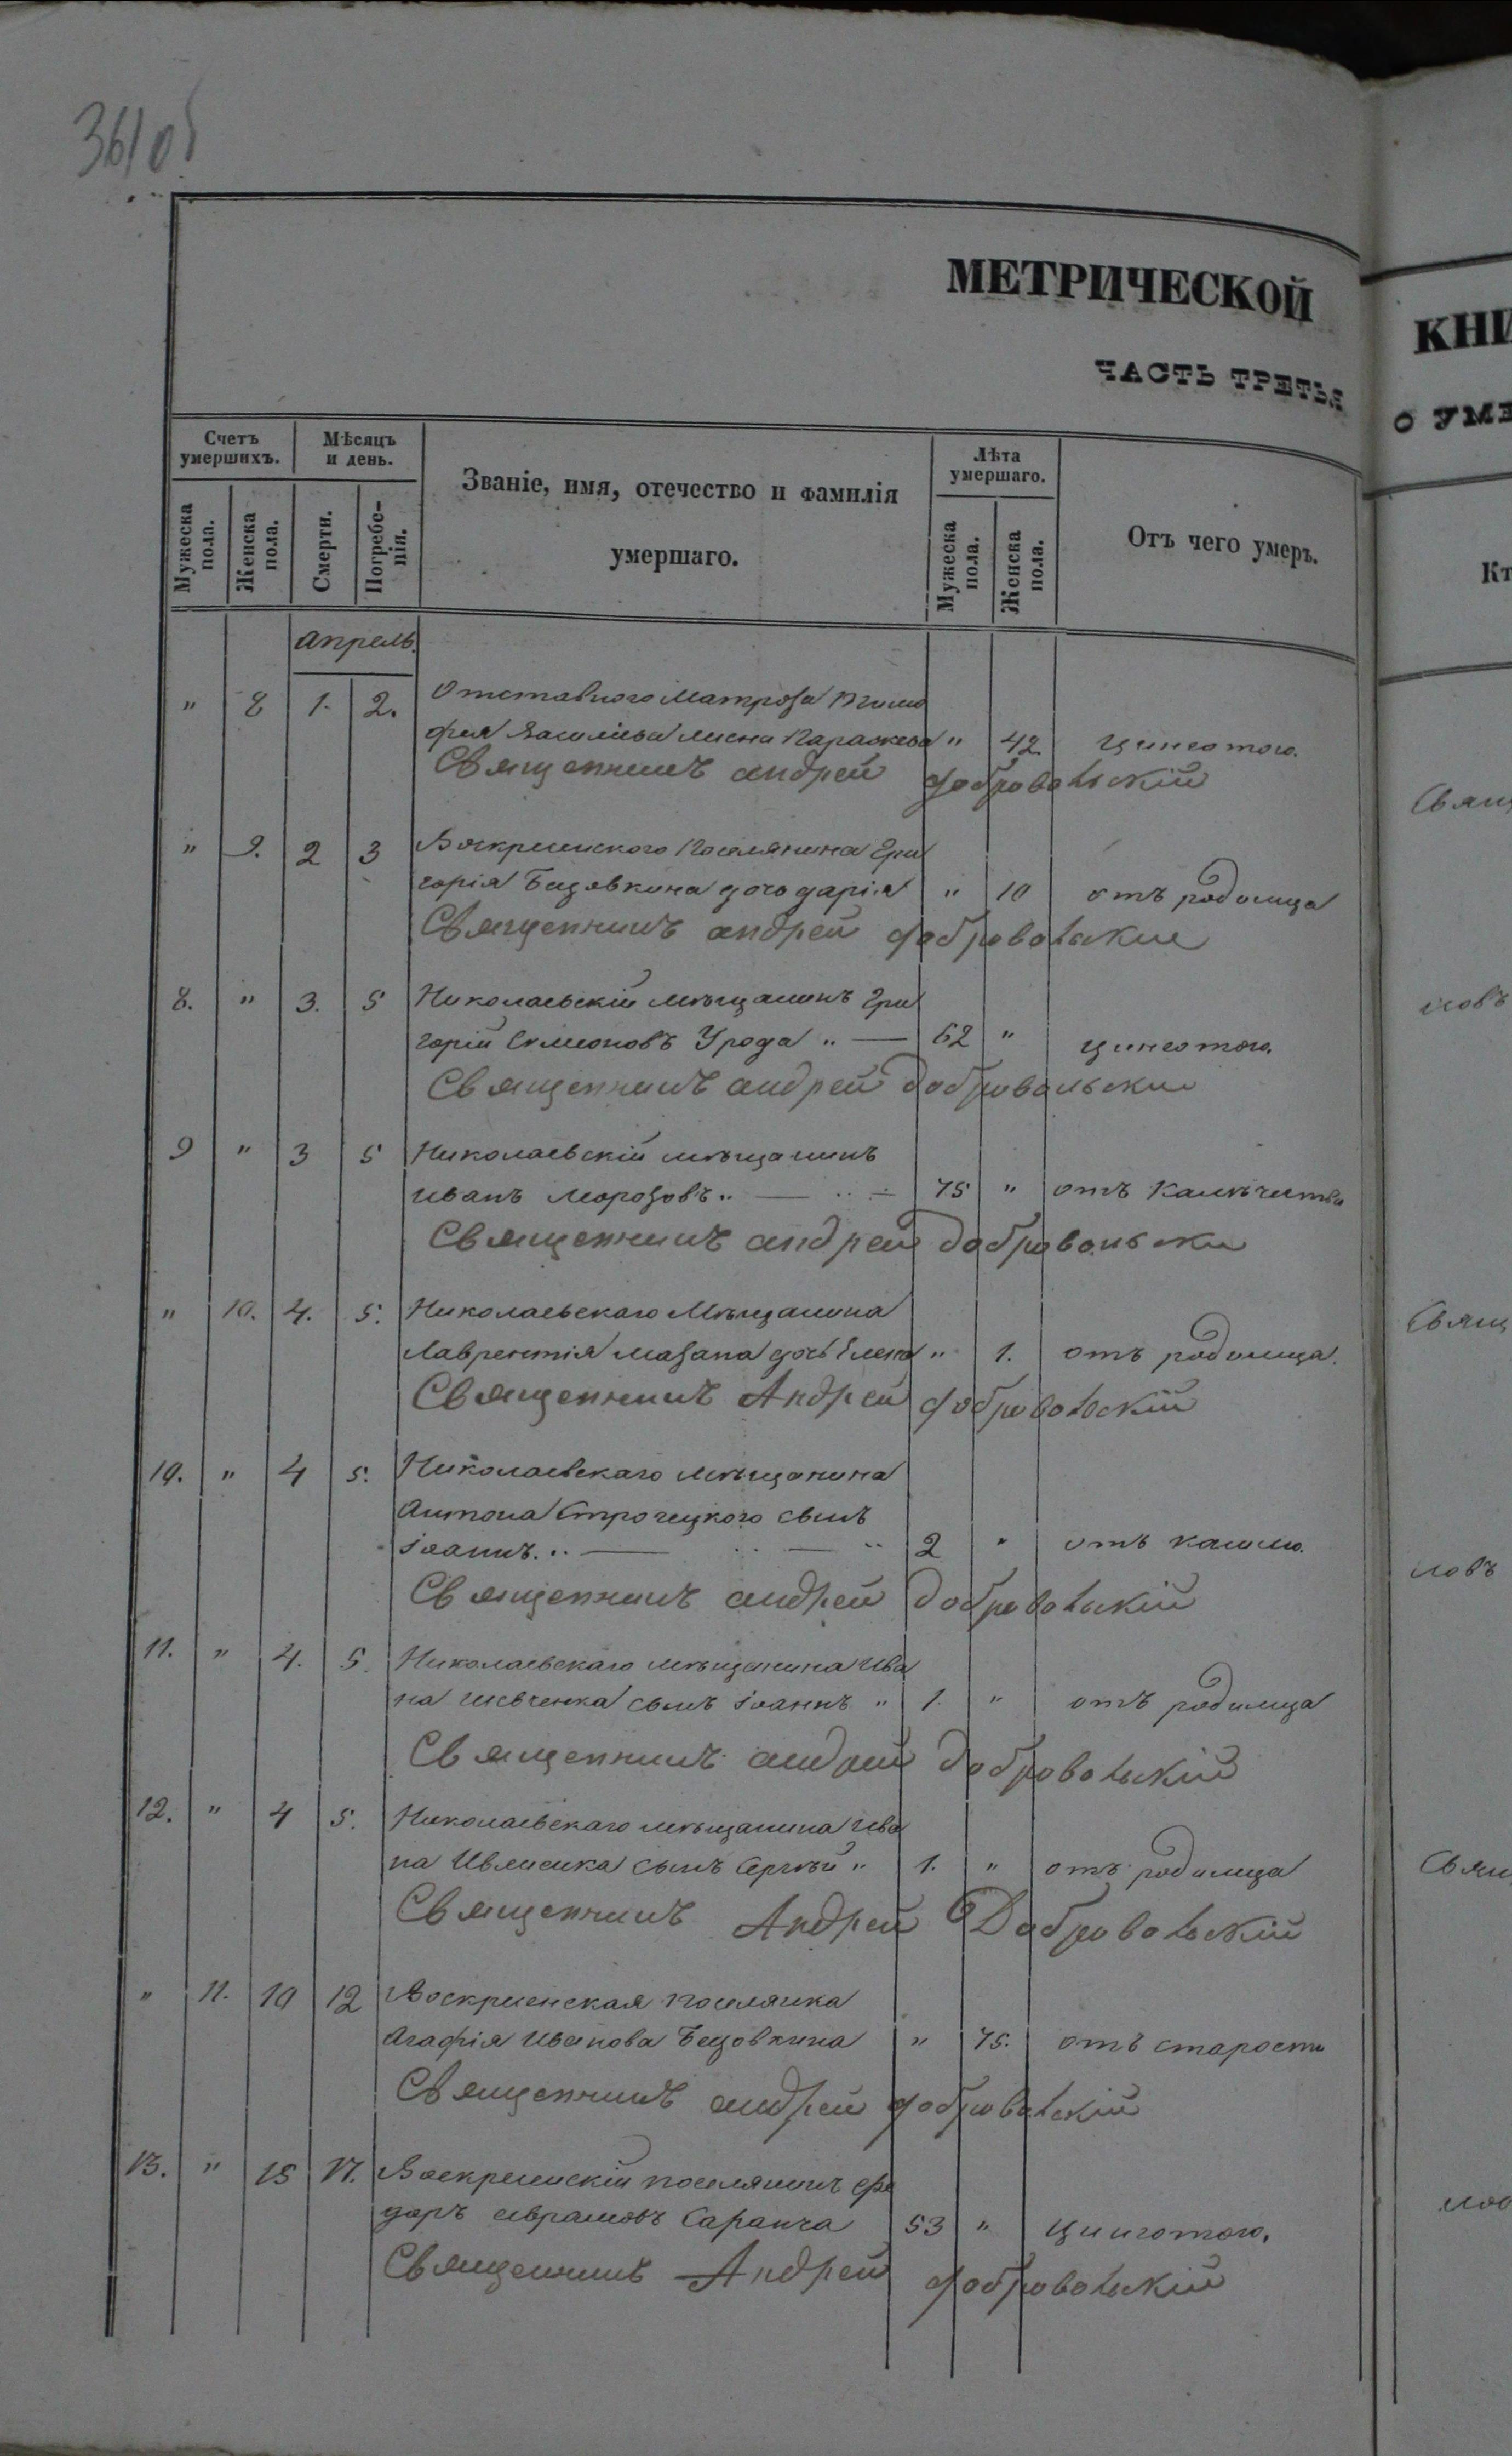 361об
МЕТРИЧЕСКОЙ
ЧАСТЬ ТРЕТЬЯ
КНИ
О УМЕ
Счетъ умершихъ.
Мѣсяцъ и день.
Званіе, имя, отечество и фамилія умершаго.
Лѣта умершаго.
Отъ чего умеръ.
Кт
Мужеска пола.
Женска пола.
Смерти.
Погребе-нія.
Мужеска пола.
Женска пола.
апрель.
" 8 1. 2. Отставного Матроза Тимо
фея Василіева жена Параскева " 42 цинготого.
Священникъ андрей добровольскій
" 9. 2 3 Воскресенского Поселянина Гри
горія Бицовкина дочь дарія " 10 отъ родимца
Священникъ андрей добровольские
8. " 3. 5 Николаевскій мѣщанинъ Гри
горій Симоновъ Урода " 62 " цинготого.
Священникъ андрей добровольски
9 " 3 5 Николаевскій мѣщанинъ
иванъ Морозовъ " 75 " отъ Калѣчества
Священникъ андрей добровольски
" 10. 4. 5. Николаевскаго Мѣщанина
Лаврентія Мазана дочь Елена " 1. отъ родимца.
Священникъ Андрей добровольскій
10. " 4 5. Николаевскаго мѣщанина
Антона Строчецкого сынъ
іоаннъ. 2 " отъ кашлю.
Священникъ андрей добровольскій
11. " 4. 5. Николаевскаго мѣщанина Ива
на Шевченка сынъ іоаннъ " 1. " отъ родимца
Священникъ андрей добровольскій
12. " 4 5. Николаевскаго мѣщанина ива
на сынъ Сергѣй " 1. " отъ родимца
Священникъ Андрей Добровольскій
" 11. 10 12 Воскресенская поселянка
Агафія Иванова Бицовкина " 75. отъ старости
Священникъ андрей добровольскій
13. " 15 17. Воскресенскій поселянинъ фе
доръ аврамовъ Саранча 53 " цинготого.
Священникъ Андрей добровольскій
Свящ
Свящ